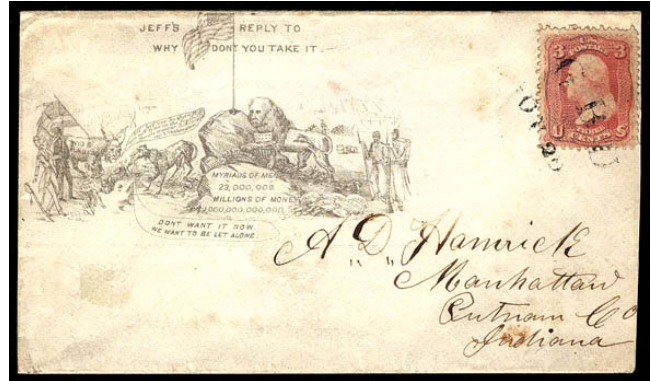 JEFF'S REPLY TO
WHY DONT YOU TAKE IT.
MYRIADS OF MEN
23,000,000.
MILLIONS OF MONEY
000,000,000,000
DONT WANT IT NOW.
WE WANT TO BE LET ALONE.
3 U.S. POSTAGE 3
U THREE CENTS S
A. D. Hamrick
Manhattan
Putnam Co
Indiana